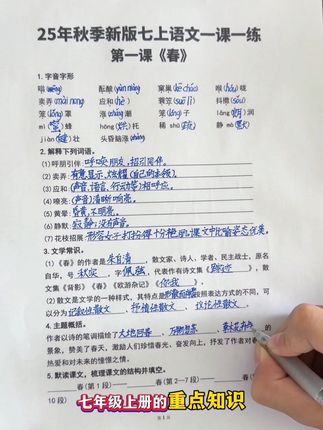 25年秋季新版七上语文一课一练
第一课《春》
1. 字音字形
唱( ) 酝酿(yùn niàng) 窠巢(kē cháo) 喉(hóu)咙
卖弄(mài nong) 应和(hè) 蓑笠(suō lì) 抖擞(sǒu)
笼(lǒng)罩 涨(zhǎng)潮 笼(lóng)子 朗(lǎng)润
mì(蜜)蜂 hōng(烘)托 稀 shū(疏) 静 mò(默)
jiàn(健)壮 头昏脑涨(zhàng)
2. 解释下列词语。
(1) 呼朋引伴: 呼唤朋友,招引同伴。
(2) 卖弄: 有意显示、炫耀(自己的本领)。
(3) 应和: (声音、语言、行动等)相呼应。
(4) 嘹亮: (声音)清晰响亮。
(5) 黄晕: 昏黄不明亮。
(6) 静默: 寂静;没有声音。
(7) 花枝招展: 形容女子打扮得十分艳丽,课文中比喻姿态优美。
3. 文学常识。
(1)《春》的作者是朱自清,散文家、诗人、学者、民主战士,原名
自华,号 秋实,字 佩弦,代表作有诗文集《踪迹》,散
文集《背影》《春》《欧游杂记》《你我》。
(2) 散文是文学的一种样式,其特点是形散而神聚按照表达方式的不同,可
以分为 记叙性散文、抒情性散文、议论性散文。
4. 主题概括。
作者以诗的笔调描绘了大地回春、万物复苏、
景象,赞美了春天,激励人们珍惜春光,奋发向上,抒发了作者对春
热爱和对未来的憧憬之情。
5. 默读课文,梳理课文的结构并填空。
春(第1段)—— 春(第2—7段) 春(
10段)
七年级上册的重点知识
第 1 页